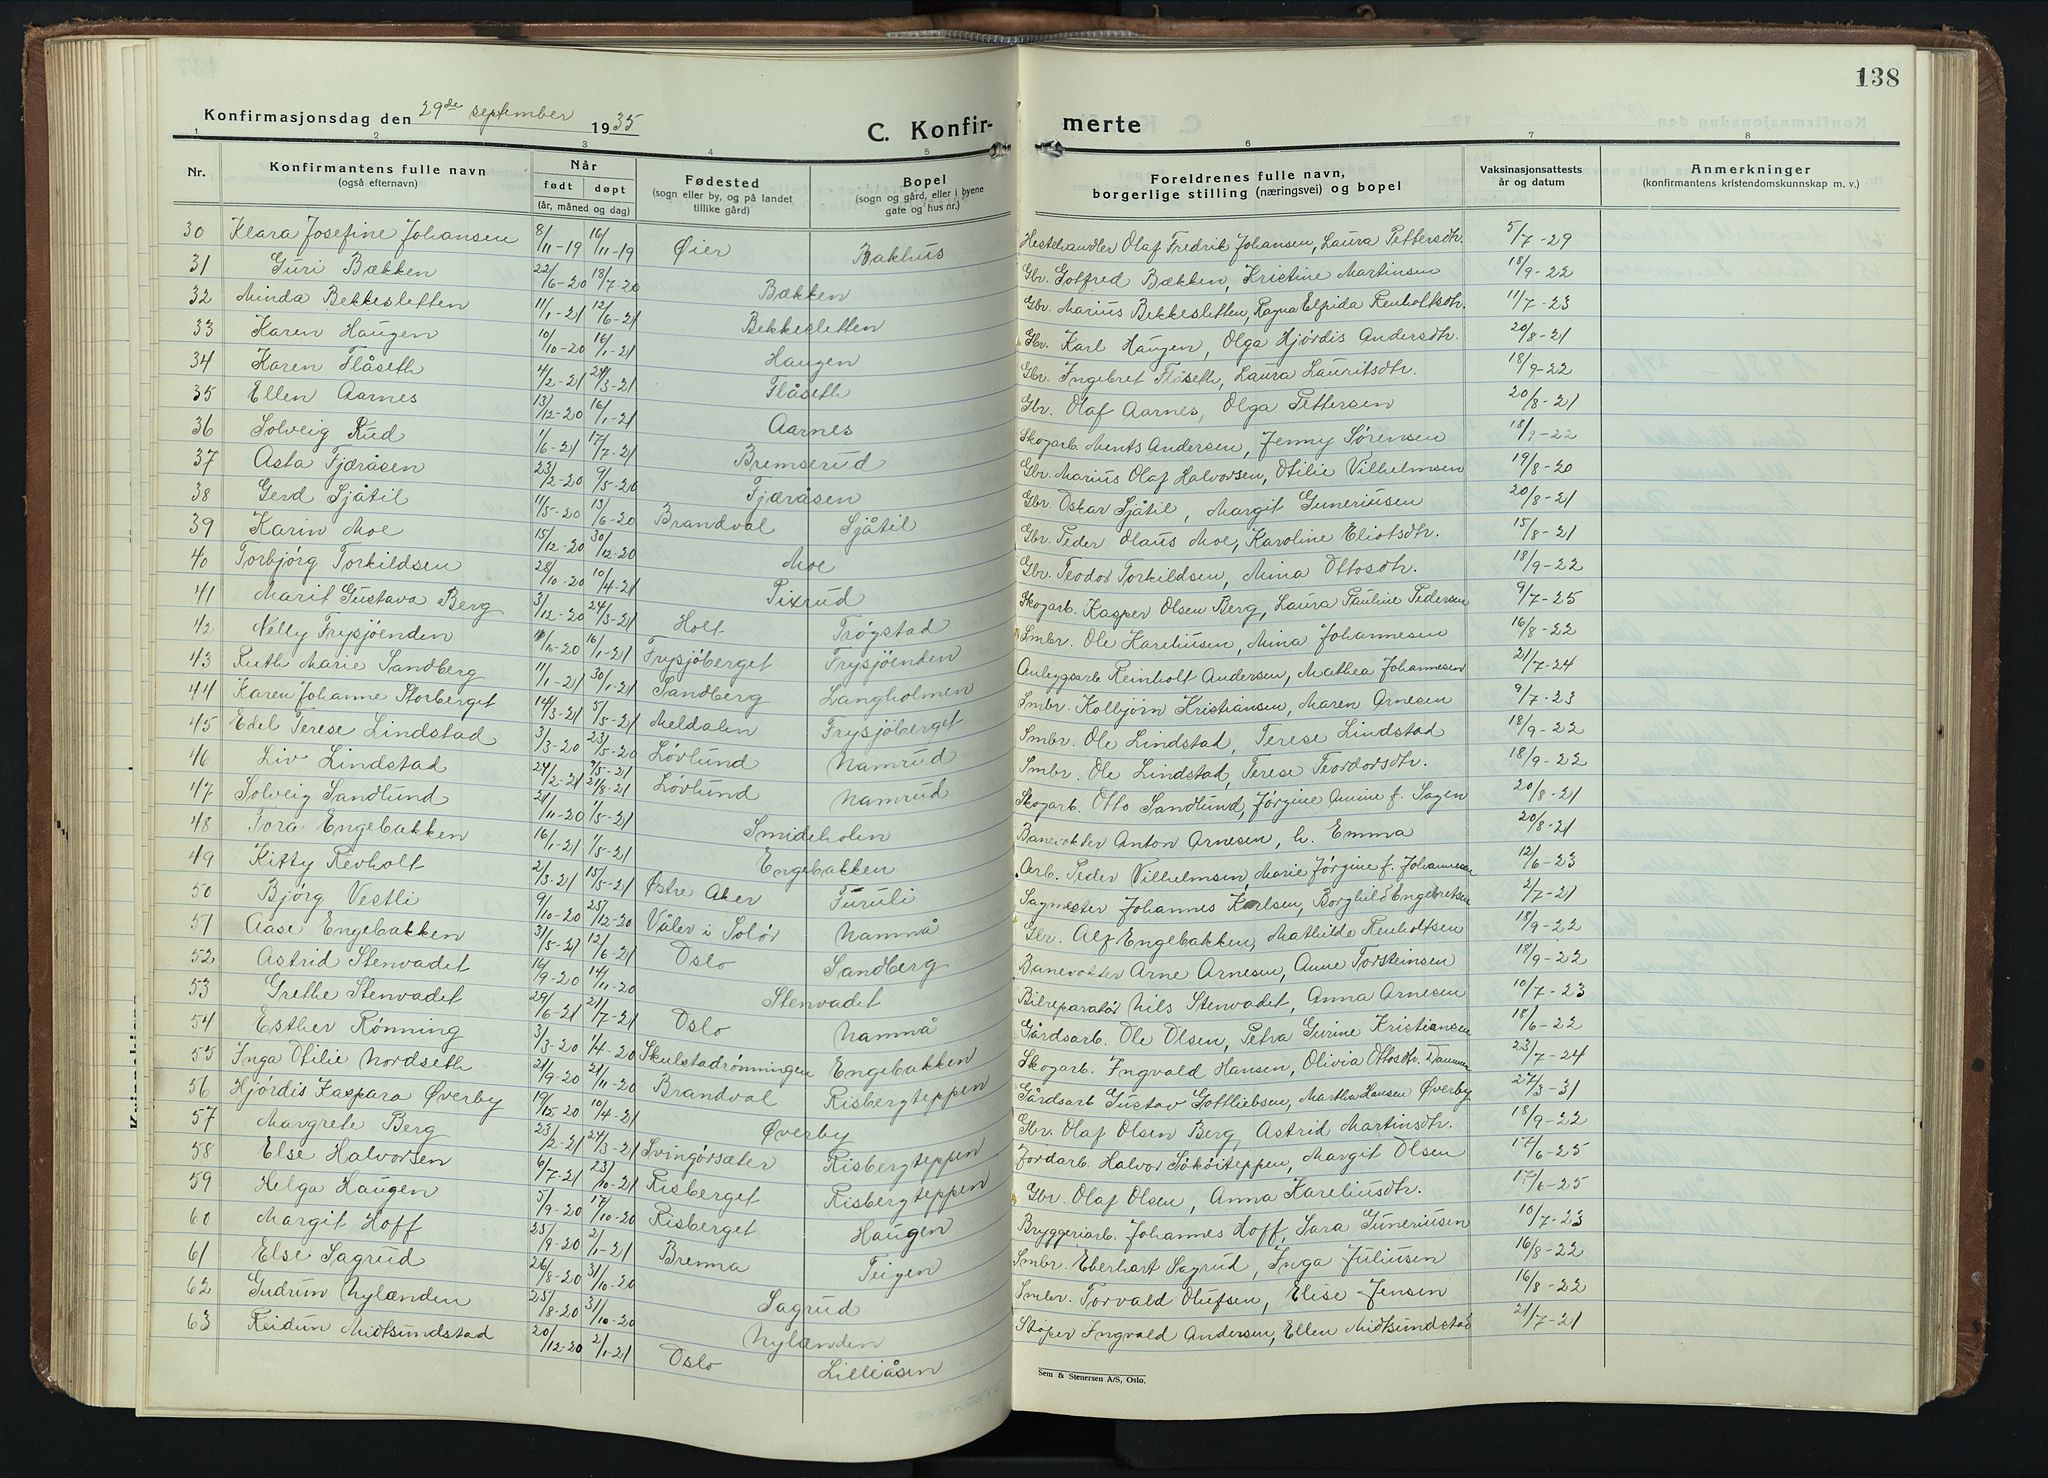 138
Konfirmasjonsdag den 29de september 1935
C. Konfir-
merte
1 2 3 4 5 6 7 8
Nr. Konfirmantens fulle navn (også efternavn) Når født døpt (år, måned og dag) Fødested (sogn eller by, og på landet tillike gård) Bopel (sogn og gård, eller i byene gate og hus nr.) Foreldrenes fulle navn, borgerlige stilling (næringsvei) og bopel Vaksinasjonsattests år og datum Anmerkninger (konfirmantens kristendomskunnskap m. v.)
30 Klara Josefine Johansen 8/11-19 16/11-19 Øier Bakhus Hestehandler Olaf Fredrik Johansen, Laura Pettersdtr. 5/7-29
31 Guri Bækken 22/6-20 18/7-20 Bækken Gbr. Golfred Bækken, Kristine Martinsen 18/9-22
32 Minda Bekkesletten 11/1-21 12/6-21 Bekkesletten Gbr. Marius Bekkesletten, Ragna Elpida Renholtsdtr. 11/7-23
33 Karen Haugen 10/10-20 16/1-21 Haugen Gbr. Karl Haugen, Olga Hjördis Andersdtr. 20/8-21
34 Karen Flåseth 4/2-21 24/3-21 Flåseth Gbr. Ingebret Flåseth, Laura Lauritsdtr. 18/9-22
35 Ellen Aarnes 13/12-20 16/1-21 Aarnes Gbr. Olaf Aarnes, Olga Pettersen 20/8-21
36 Solveig Rud 1/6-21 17/7-21 Bremserud Skogarb. Ments Andersen, Jenny Sørensen 18/9-22
37 Asta Fjæråsen 23/2-20 9/5-20 Fjæråsen Gbr. Marius Olaf Halvorsen, Otilie Vilhelmsen 19/8-20
38 Gerd Sjåtil 11/5-20 13/6-20 Brandval Sjåtil Gbr. Oskar Sjåtil, Margit Guneriusen 20/8-21
39 Karin Moe 15/12-20 30/12-20 Moe Gbr. Peder Olaus Moe, Karoline Eliotsdtr. 15/8-21
40 Torbjørg Torkildsen 28/10-20 10/4-21 Pixrud Gbr. Teodor Torkildsen, Mina Ottosdtr. 18/9-22
41 Marit Gustava Berg 3/12-20 24/3-21 Holt Trøgstad Skogarb. Kasper Olsen Berg, Laura Pauline Pedersen 9/7-25
42 Nelly Frysjøenden 11/10-20 16/1-21 Frysjøberget Frysjøenden Smbr. Ole Kareliusen, Mina Johannesen 16/8-22
43 Ruth Marie Sandberg 11/1-21 30/1-21 Sandberg Langholmen Anleggsarb. Reinholt Andersen, Mathea Johannesen 21/7-24
44 Karen Johanne Storberget 14/3-21 5/5-21 Meldalen Frysjøberget Smbr. Kolbjørn Kristiansen, Maren Arnesen 9/7-23
45 Edel Terese Lindstad 3/3-20 23/5-20 Løvlund Namrud Smbr. Ole Lindstad, Terese Lindstad 18/9-22
46 Liv Lindstad 24/2-21 5-21 Løvlund Namrud Smbr. Ole Lindstad, Terese Teordorsdtr. 18/9-22
47 Solveig Sandlund 21/11-20 1/5-21 Smideholen Skogarb. Otto Sandlund, Jørgine Amine f. Sagen 20/8-21
48 Tora Engebakken 16/1-21 1/5-21 Engebakken Banevokter Anton Arnesen, h. Emma 20/8-21
49 Kitty Revholt 2/3-21 15/5-21 Østre Aker Furuli Arb. Peder Vilhelmsen, Marie Jørgine f. Johannesen 12/6-23
50 Bjørg Vestli 9/10-20 25/12-20 Våler i Solør Nammå Sagmester Johannes Karlsen, Borghild Engebretsen 2/7-21
51 Aase Engebakken 31/5-21 12/6-21 Oslo Sandberg Gbr. Alf Engebakken, Mathilde Renholtsen 18/9-22
52 Astrid Stenvadet 16/9-20 14/11-20 Stenvadet Banevokter Arne Arnesen, Anne Torsteinsen 18/9-22
53 Grethe Stenvadet 29/6-21 21/7-21 Oslo Nammå Bilreparatør Nils Stenvadet, Anna Arnesen 10/7-23
54 Esther Rønning 3/3-20 1/4-20 Skulstadrønningen Engebakken Gårdsarb. Ole Olsen, Petra Gurine Kristiansen 18/6-22
55 Inga Otilie Nordseth 21/9-20 21/11-20 Brandval Risbergteppen Skogarb. Ingvald Hansen, Olivia Ottosdtr. Dammen 23/7-24
56 Hjørdis Kaspara Øverby 19/12-20 10/4-21 Øverby Gårdsarb Gustav Gottliebsen, Martha Hansen Øverby 27/3-31
57 Margrete Berg 23/2-21 24/3-21 Svingørsæter Risbergteppen Gbr. Olaf Olsen Berg, Astrid Martinsdtr. 18/9-22
58 Else Halvorsen 6/7-21 23/10-21 Risberget Risbergteppen Jordarb. Halvor Søkøiteppen, Margit Olsen 17/6-25
59 Helga Haugen 5/9-20 17/10-20 Risberget Haugen Gbr. Olaf Olsen, Anna Kareliusdtr. 17/6-25
60 Margit Hoff 25/9-20 2/1-21 Brenna Teigen Bryggeriarb. Johannes Hoff, Sara Guneriusen 10/7-23
61 Else Sagrud 26/8-20 31/10-20 Sagrud Smbr. Eberhart Sagrud, Inga Juliusen 16/8-22
62 Gudrun Nylænden 25/8-20 31/10-20 Nylænden Smbr. Torvald Olufsen, Elise Jensen 16/8-22
63 Reidun Midtsundstad 20/12-20 2/1-21 Oslo Lilleåsen Støper Ingvald Andersen, Ellen Midtsundstad 21/7-21
Sem & Stenersen A/S, Oslo.